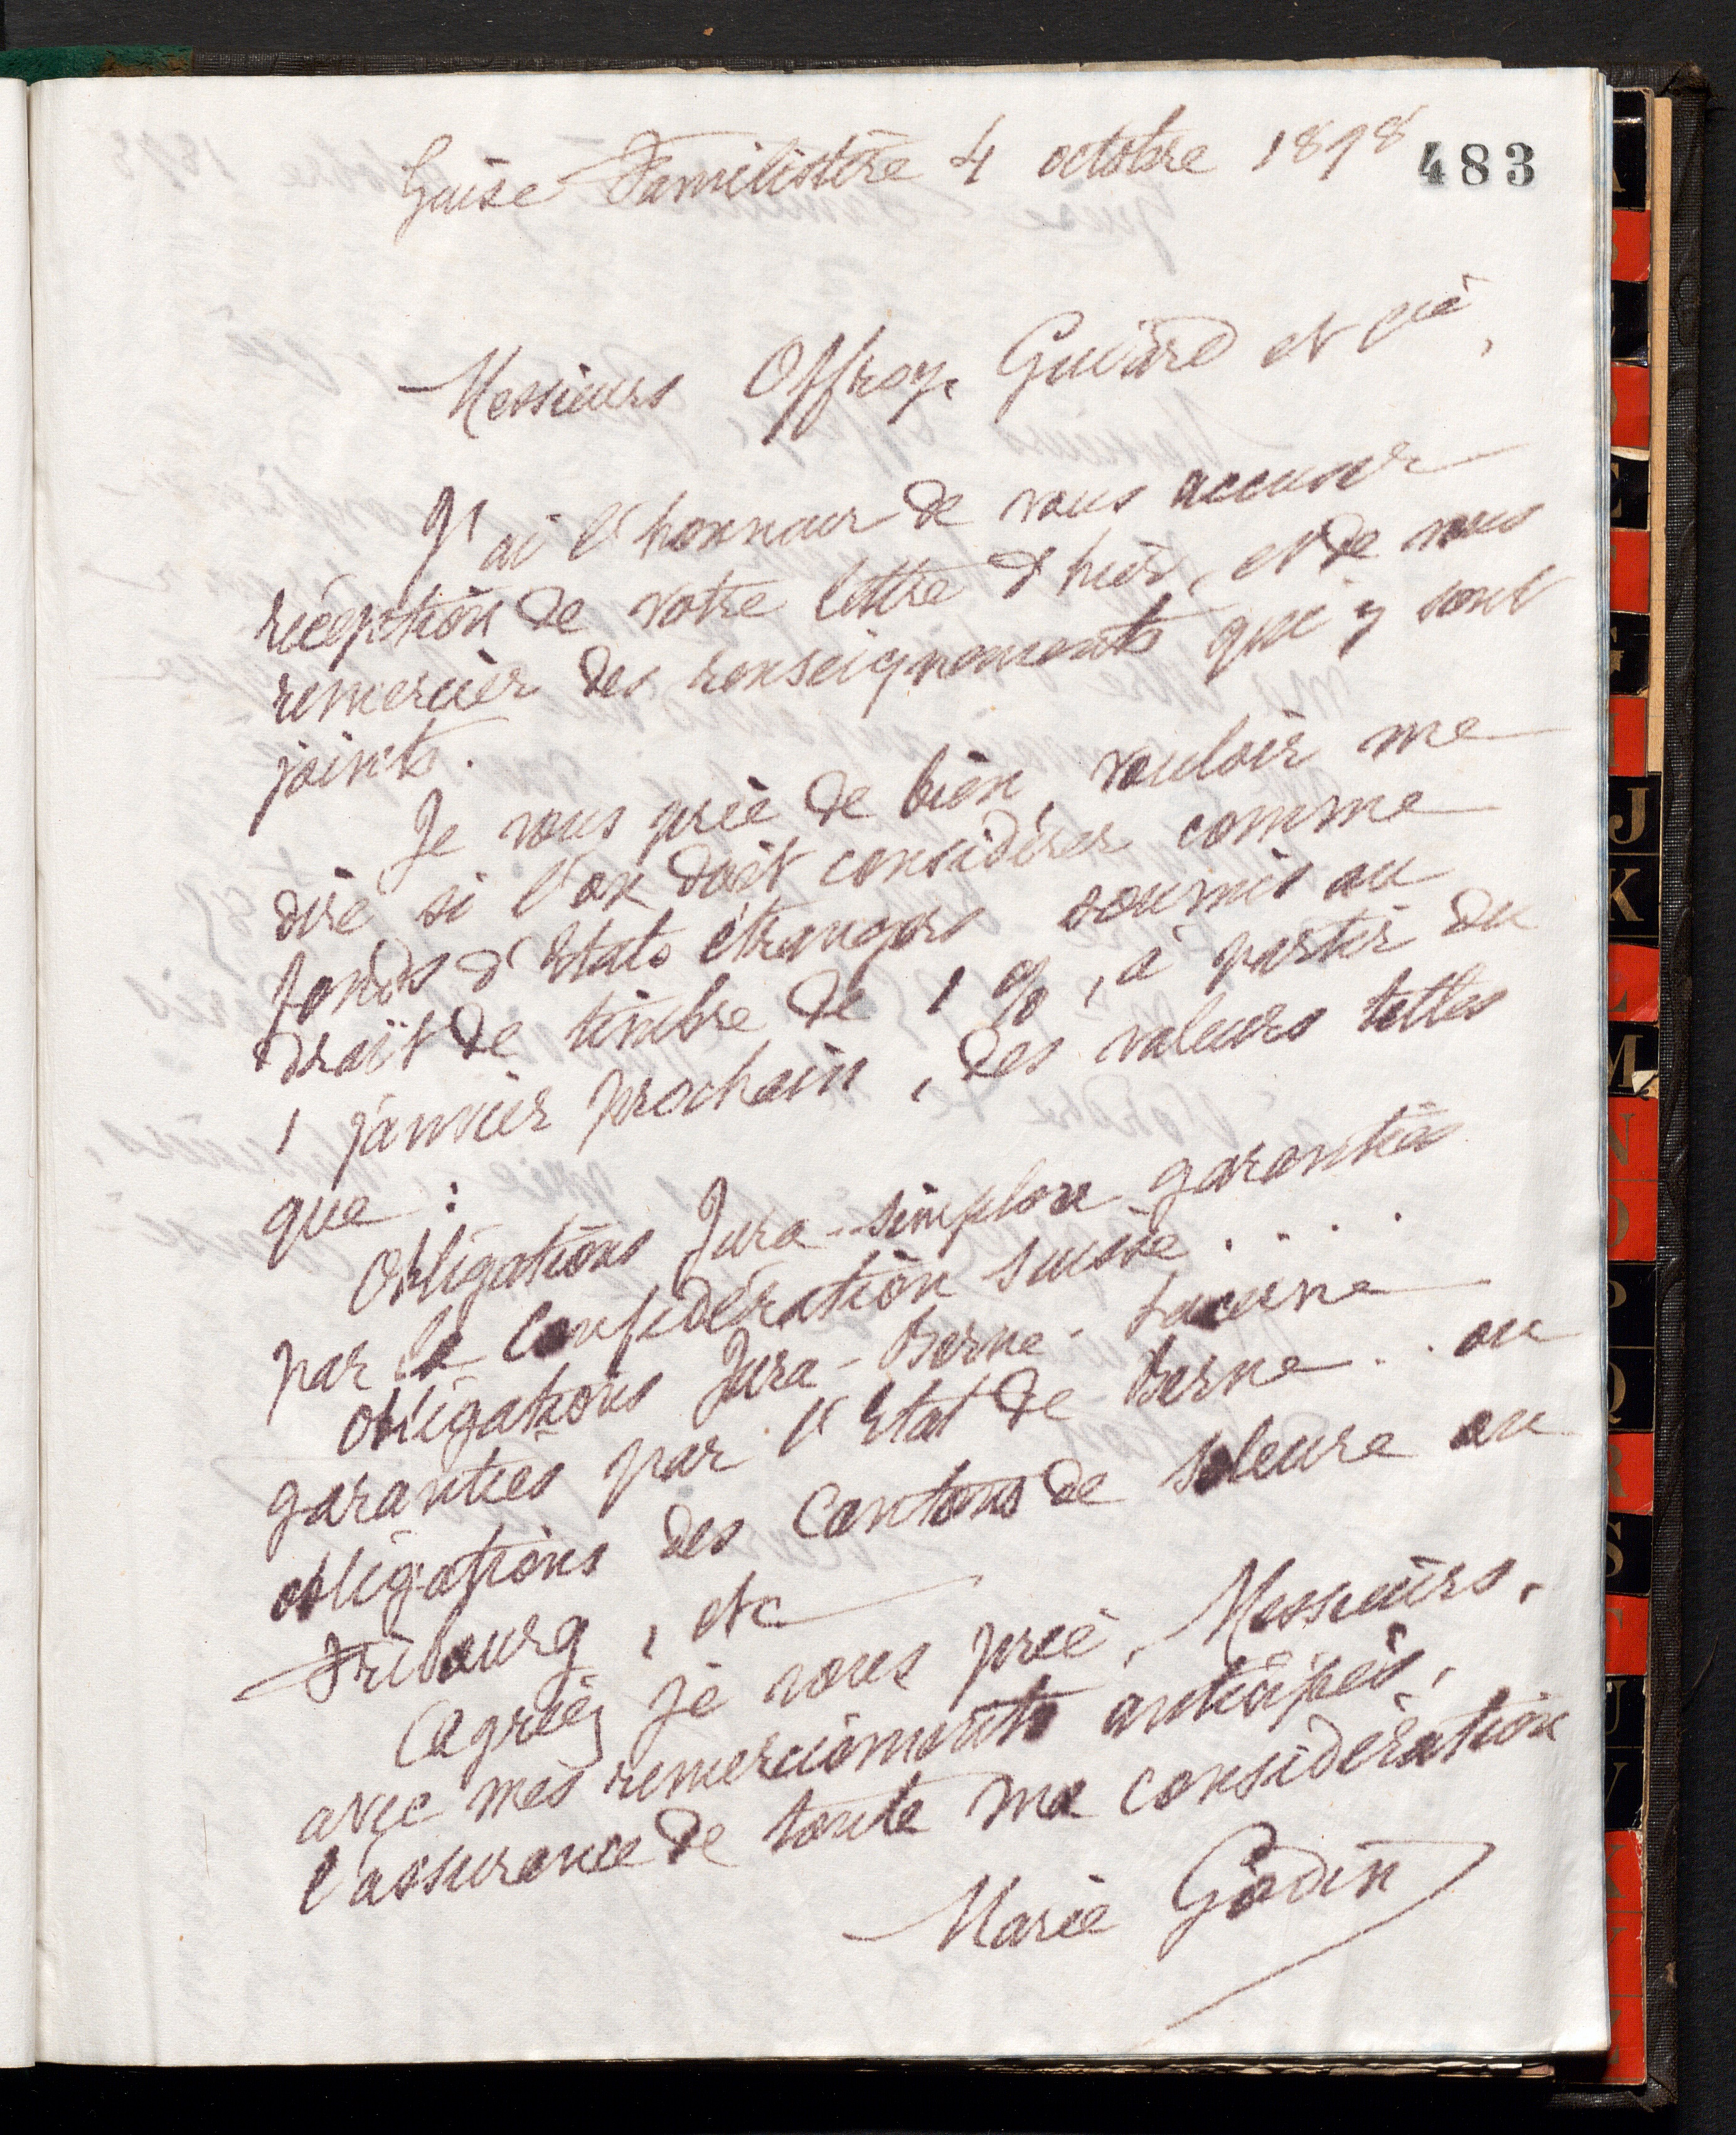 Guise Familistère 4 octobre 1898
483
Messieurs Offroy, Guiard et Cie,
J'ai l'honneur de vous accuser
réception de votre lettre d'hier, et de vous
remercier des renseignements qui y sont
joints.
Je vous prie de bien vouloir me
dire si l'on doit considérer comme
fonds d'Etats étrangers soumis au
droit de timbre de 1 %, à partir du
1 janvier prochain, des valeurs telles
que :
Obligations Jura-Simplon garanties
par la Confédération suisse . . . .
Obligations Jura-Berne-Lucerne
garanties par l'Etat de Berne . . ou
obligations des Cantons de Soleure ou
Fribourg, etc
Agréez je vous prie, Messieurs,
avec mes remerciements anticipés,
l'assurance de toute ma considération
Marie Godin
J
K
L
M
N
O
P
Q
R
S
T
U
V